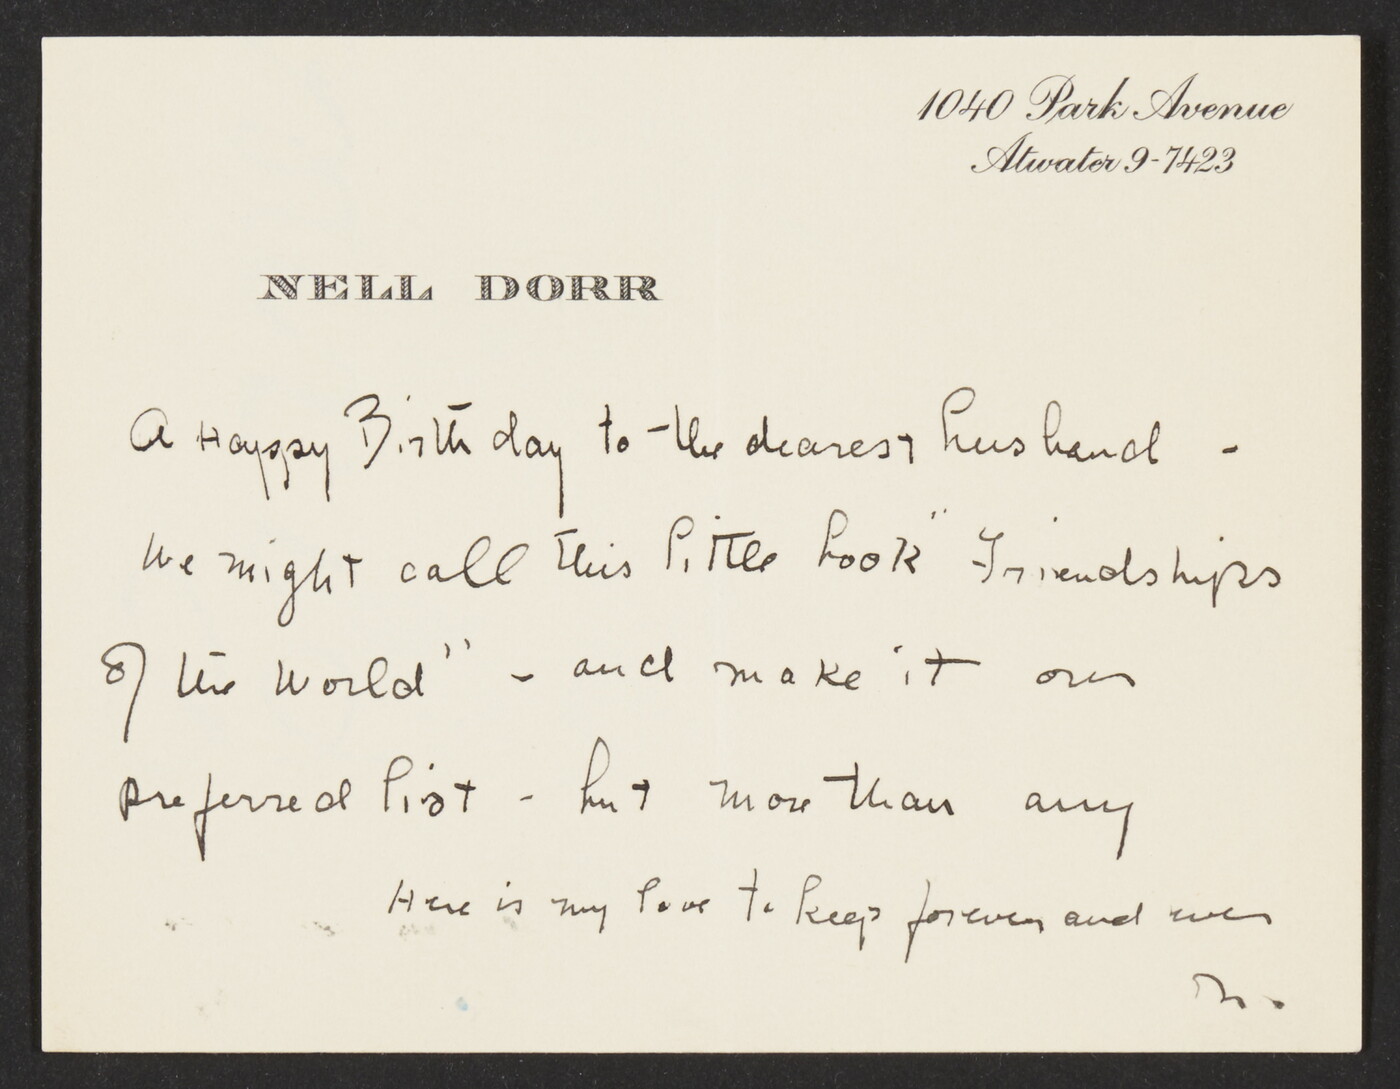 1040 Park Avenue
Atwater 9-7423
NELL DORR
A Happy Birthday to the dearest husband -
We might call this little book "Friendships
of the World" - and make it our
preferred list - but more than any
Here is my love to keep forever and ever
N.